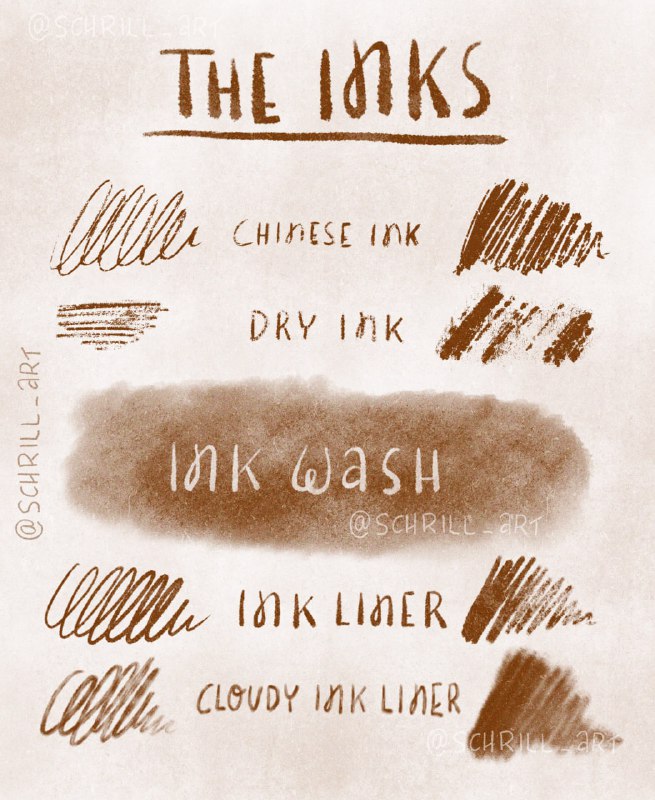 @SCHRILL_ART
THE INKS
CHINESE INK
DRY INK
@SCHRILL_ART
INK WASH
@SCHRILL_ART
INK LINER
CLOUDY INK LINER
@SCHRILL_ART